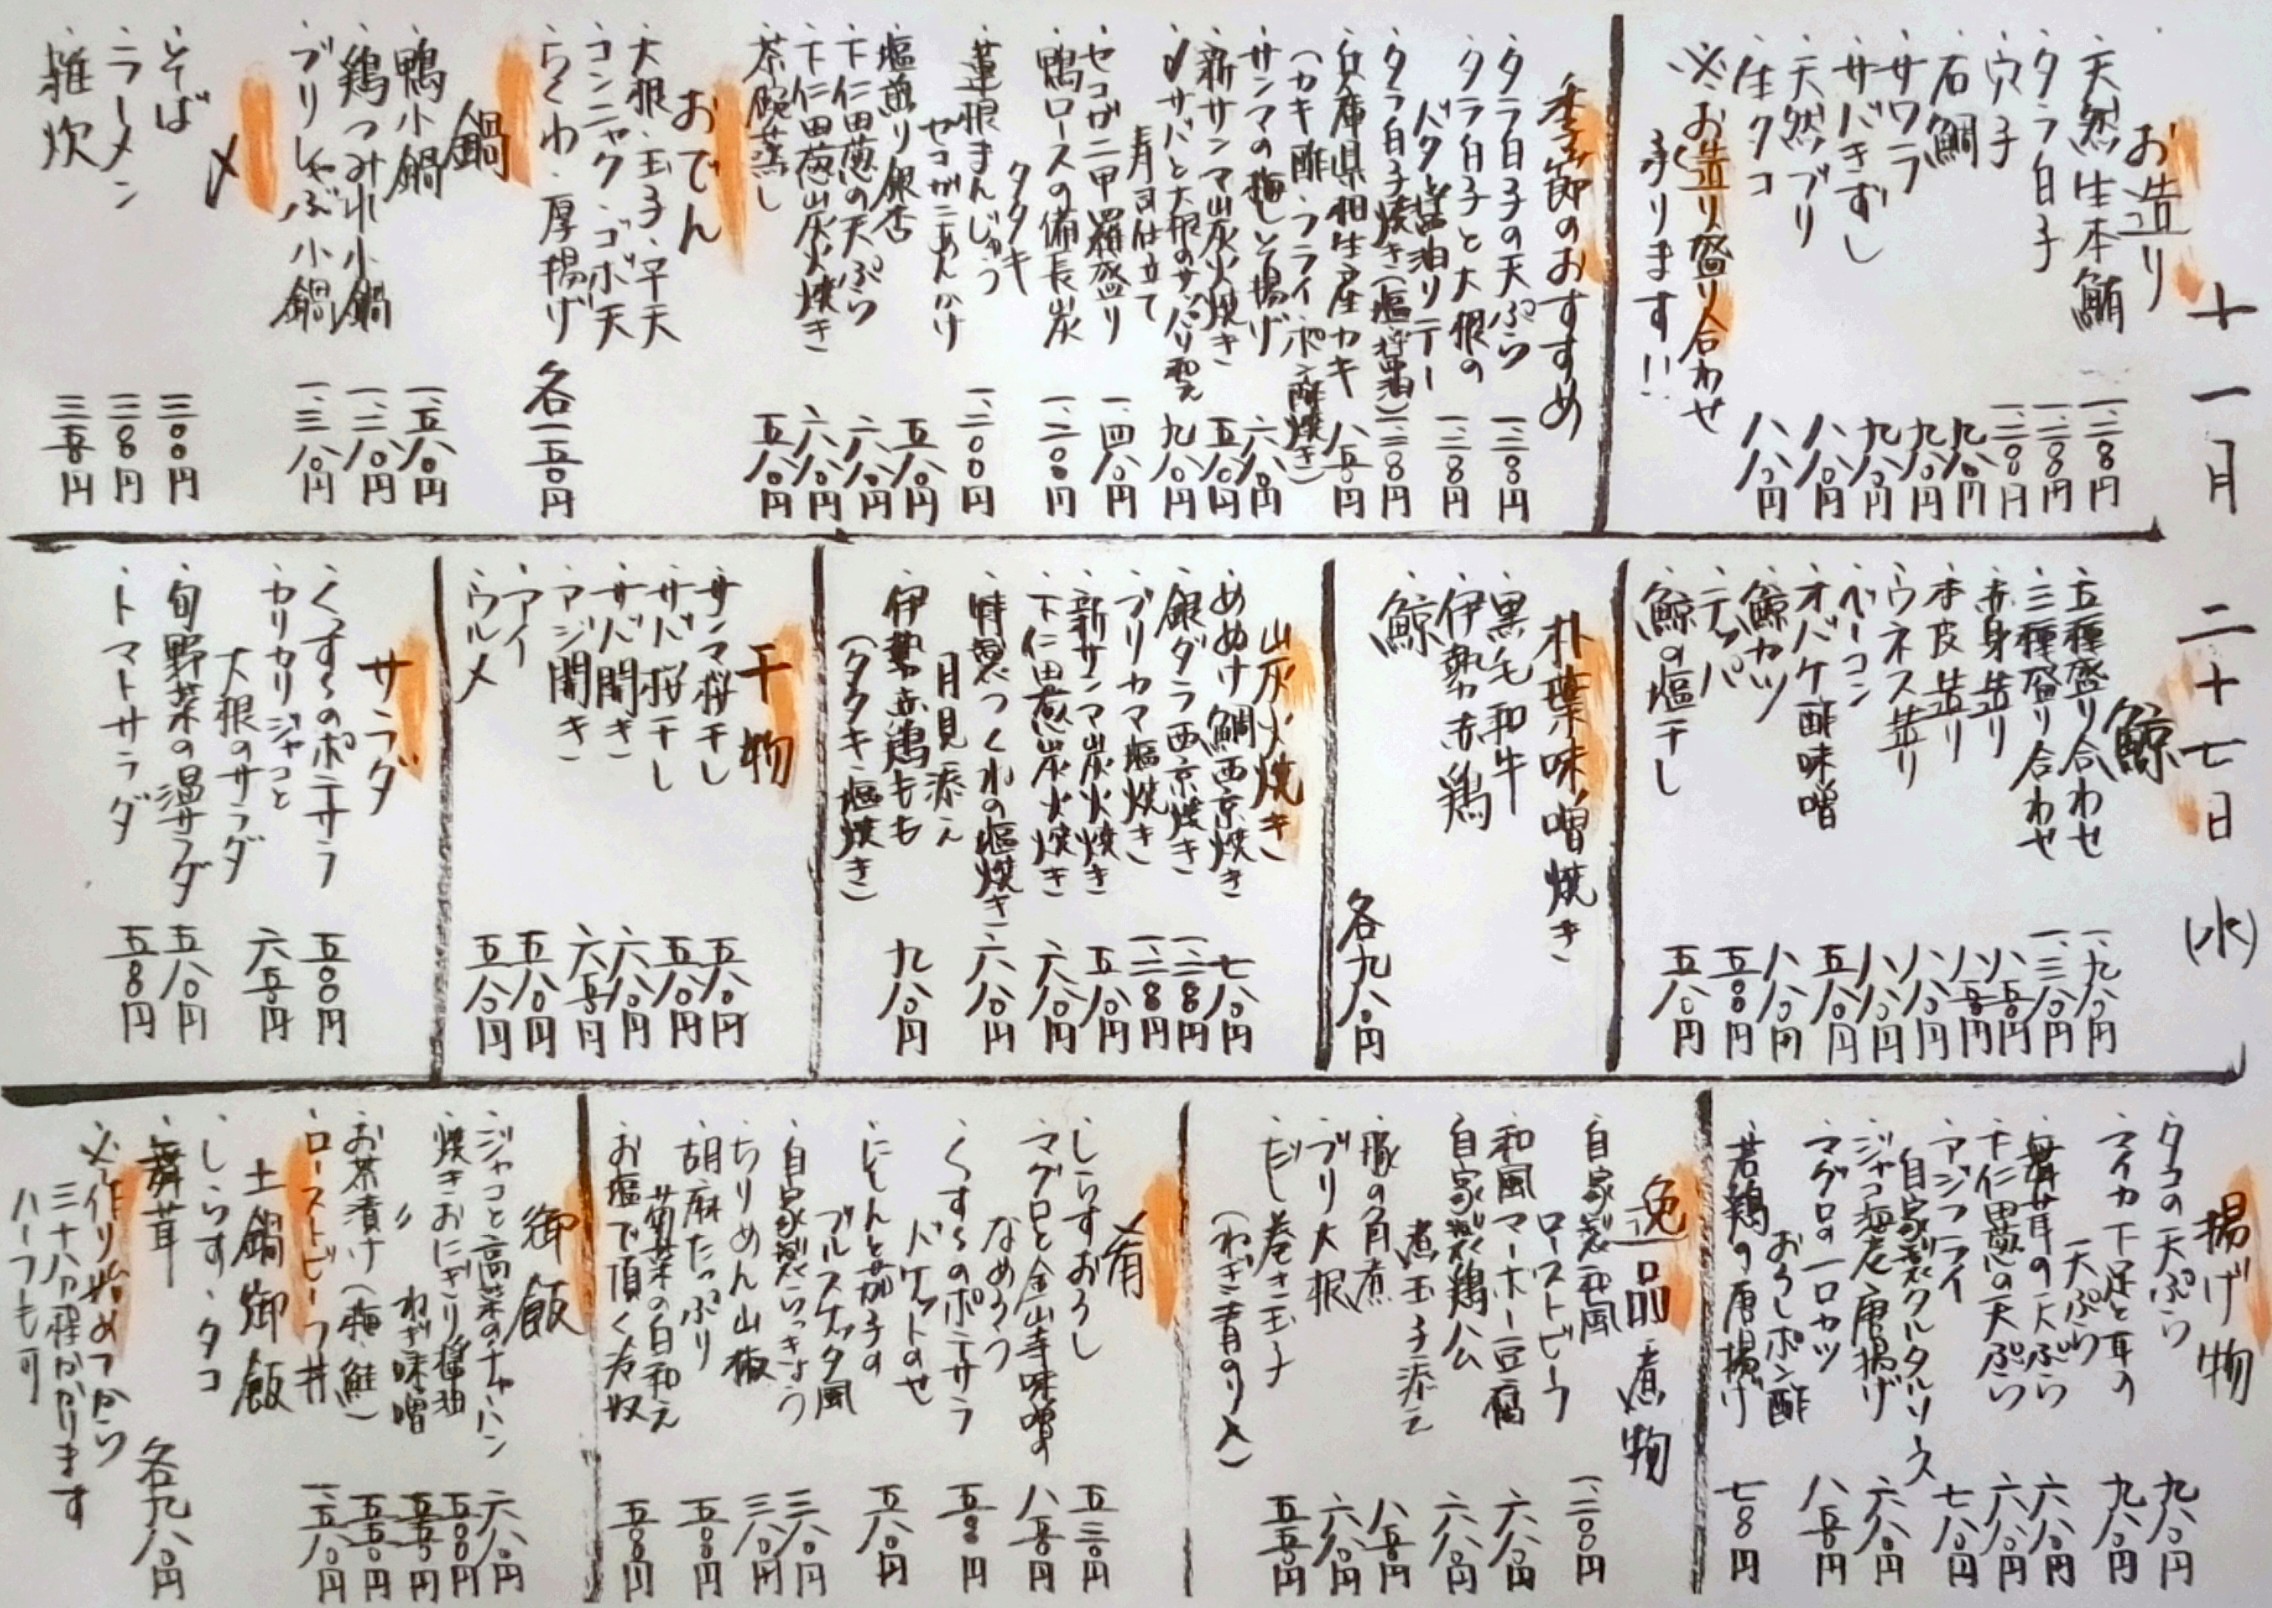 十一月二十七日(水)
お造り
・天然生本鮪 一、二〇〇円
・タラ白子 一、二〇〇円
・穴子 一、二〇〇円
・石鯛 九八〇円
・サワラ 九八〇円
・サバきずし 九八〇円
・天然ブリ 八八〇円
・生タコ 八八〇円
※お造り盛り合わせ
承ります!!
季節のおすすめ
・タラ白子の天ぷら 一、二〇〇円
・タラ白子と大根の
バター醤油ソテー 一、二〇〇円
・タラ白子焼き(塩・醤油) 一、二〇〇円
・兵庫県相生産カキ
(カキ酢・フライ・ポン酢焼き) 八五〇円
・サンマの梅しそ揚げ 六八〇円
・新サンマ炭火焼き 五八〇円
・〆サバと大根のサッパリ和え
寿司仕立て 九八〇円
・セコガニ甲羅盛り 一、四八〇円
・鴨ロースの備長炭
タタキ 一、二〇〇円
・蓮根まんじゅう
セコガニあんかけ 一、二〇〇円
・塩煎り銀杏 五八〇円
・下仁田葱の天ぷら 六八〇円
・下仁田葱炭火焼き 六八〇円
・茶碗蒸し 五八〇円
おでん
・大根・玉子・平天
・コンニャク・ゴボ天
・ちくわ・厚揚げ 各一五〇円
鍋
・鴨小鍋 一、五八〇円
・鶏つみれ小鍋 一、二八〇円
・ブリしゃぶ小鍋 一、三八〇円
〆
・そば 三〇〇円
・ラーメン 三〇〇円
・雑炊 三五〇円
鯨
・五種盛り合わせ 一、九八〇円
・三種盛り合わせ 一、三八〇円
・赤身造り 八五〇円
・本皮造り 八五〇円
・ウネス造り 八八〇円
・ベーコン 八八〇円
・オバケ酢味噌 五八〇円
・鯨カツ 八八〇円
・テッパ 五〇〇円
・鯨の塩干し 五八〇円
朴葉味噌焼き
・黒毛和牛
・伊勢赤鶏
・鯨 各九八〇円
炭火焼き
・めぬけ鯛西京焼き 七八〇円
・銀ダラ西京焼き 一、二〇〇円
・ブリカマ塩焼き 一、二〇〇円
・新サンマ炭火焼き 五八〇円
・下仁田葱炭火焼き 六八〇円
・特製つくねの塩焼き
月見添え 六八〇円
・伊勢赤鶏もも
(タタキ・塩焼き) 九八〇円
干物
・サンマ桜干し 五八〇円
・サバ桜干し 五八〇円
・サバ開き 六八〇円
・アジ開き 六五〇円
・アイ 五八〇円
・ウルメ 五八〇円
サラダ
・くずしのポテサラ 五〇〇円
・カリカリジャコと
大根のサラダ 六五〇円
・旬野菜の温サラダ 五八〇円
・トマトサラダ 五〇〇円
揚げ物
・タコの天ぷら 九八〇円
・マイカ下足と耳の
天ぷら 九八〇円
・舞茸の天ぷら 六八〇円
・下仁田葱の天ぷら 六八〇円
・アジフライ
自家製タルタルソース 七八〇円
・ジャコ海老唐揚げ 六八〇円
・マグロの一口カツ
おろしポン酢 八五〇円
・若鶏の唐揚げ 七〇〇円
逸品・煮物
・自家製和風
ローストビーフ 一、二〇〇円
・和風マーボー豆腐 六八〇円
・自家製鶏ハム 六八〇円
・豚の角煮
煮玉子添え 八五〇円
・ブリ大根 六八〇円
・だし巻き玉子
(ねぎ・青のり入) 五五〇円
肴
・しらすおろし 五三〇円
・マグロと金山寺味噌の
なめろう 八五〇円
・くずしのポテサラ
バケットのせ 五〇〇円
・にしんと茄子の
ブルスケッタ風 五八〇円
・自家製らっきょう 三八〇円
・ちりめん山椒 三八〇円
・胡麻たっぷり
菊菜の白和え 五〇〇円
・お塩で頂く冷奴 五〇〇円
御飯
・ジャコと高菜のチャーハン 六八〇円
・焼きおにぎり 醤油 五〇〇円
・〃 ねぎ味噌 五五〇円
・お茶漬け(梅・鮭) 五五〇円
・ローストビーフ丼 一、五八〇円
土鍋御飯
・しらす・タコ
・舞茸 各九八〇円
※作り始めてから
三十八分程かかります
ハーフも可